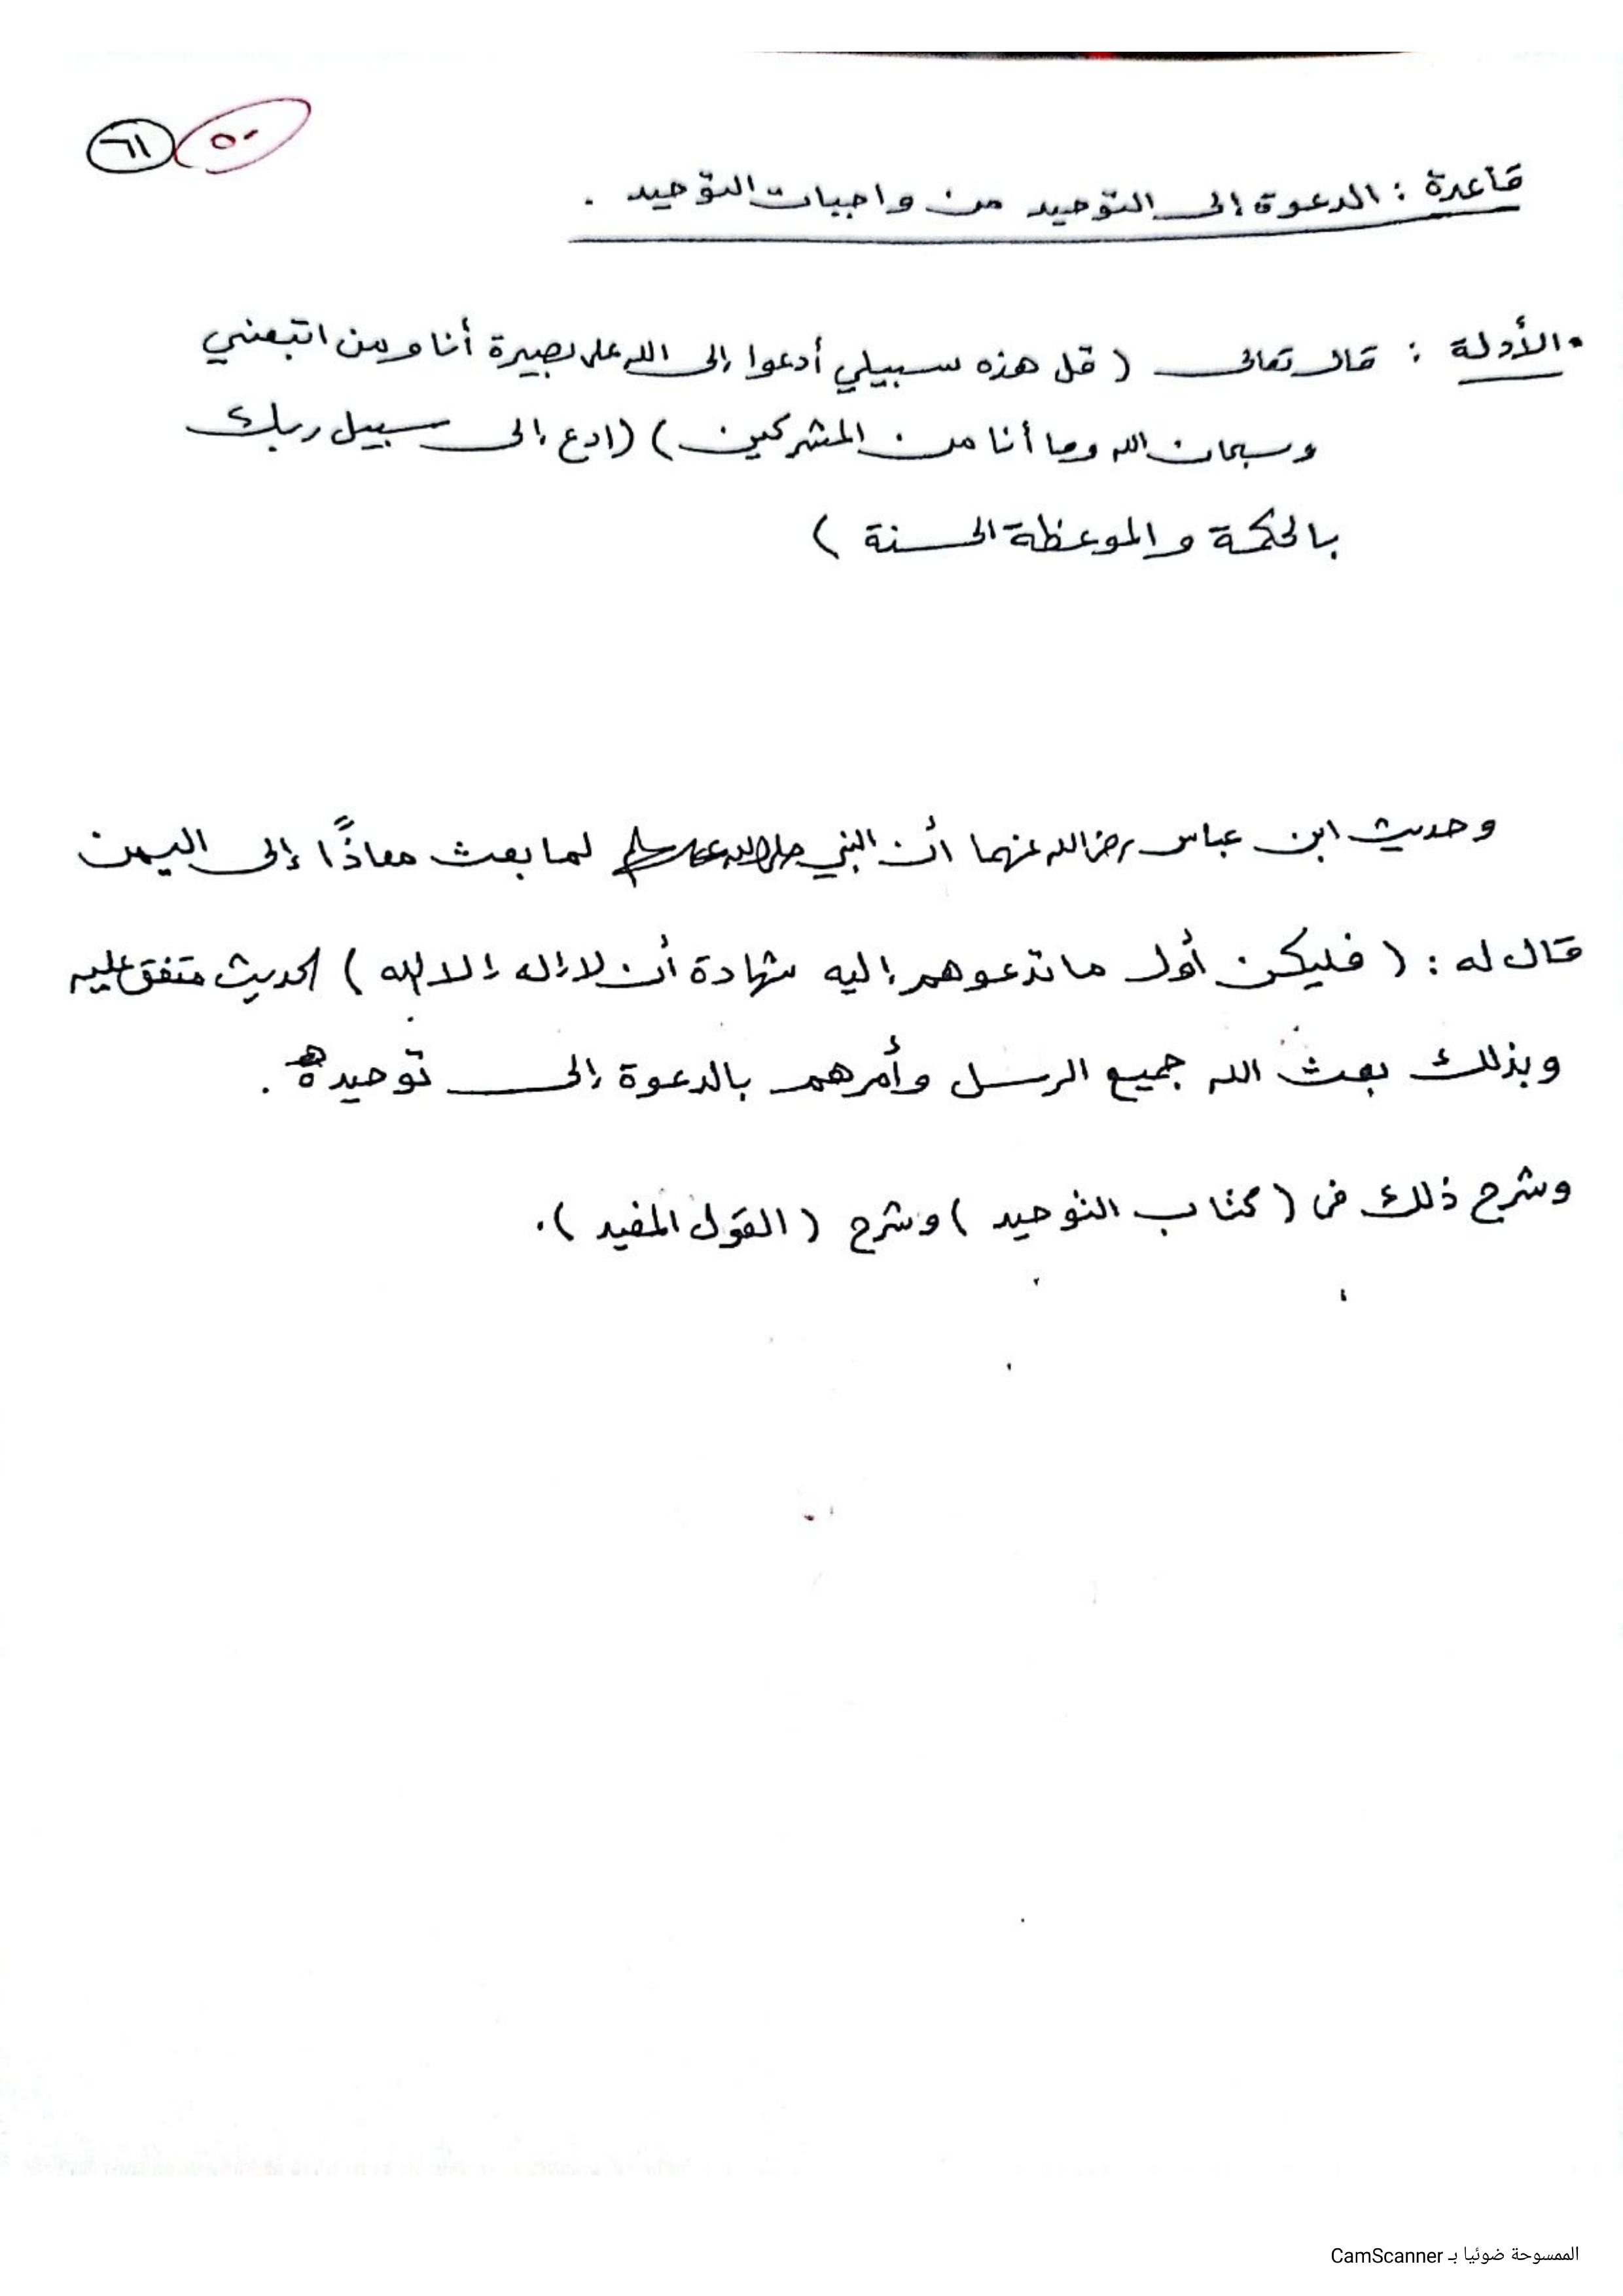 ٥٠ ٦١
قاعدة : الدعوة إلى التوحيد من واجبات التوحيد .
• الأدلة : قال تعالى ( قل هذه سبيلي أدعوا إلى الله على بصيرة أنا ومن اتبعني
وسبحان الله وما أنا من المشركين ) ( ادع إلى سبيل ربك
بالحكمة والموعظة الحسنة )
وحديث ابن عباس رضي الله عنهما أن النبي صلى الله عليه وسلم لما بعث معاذًا إلى اليمن
قال له : ( فليكن أول ما تدعوهم إليه شهادة أن لا إله إلا الله ) الحديث متفق عليه
وبذلك بعث الله جميع الرسل وأمرهم بالدعوة إلى توحيده .
وشرح ذلك في ( كتاب التوحيد ) وشرح ( القول المفيد ) .
الممسوحة ضوئيا بـ CamScanner